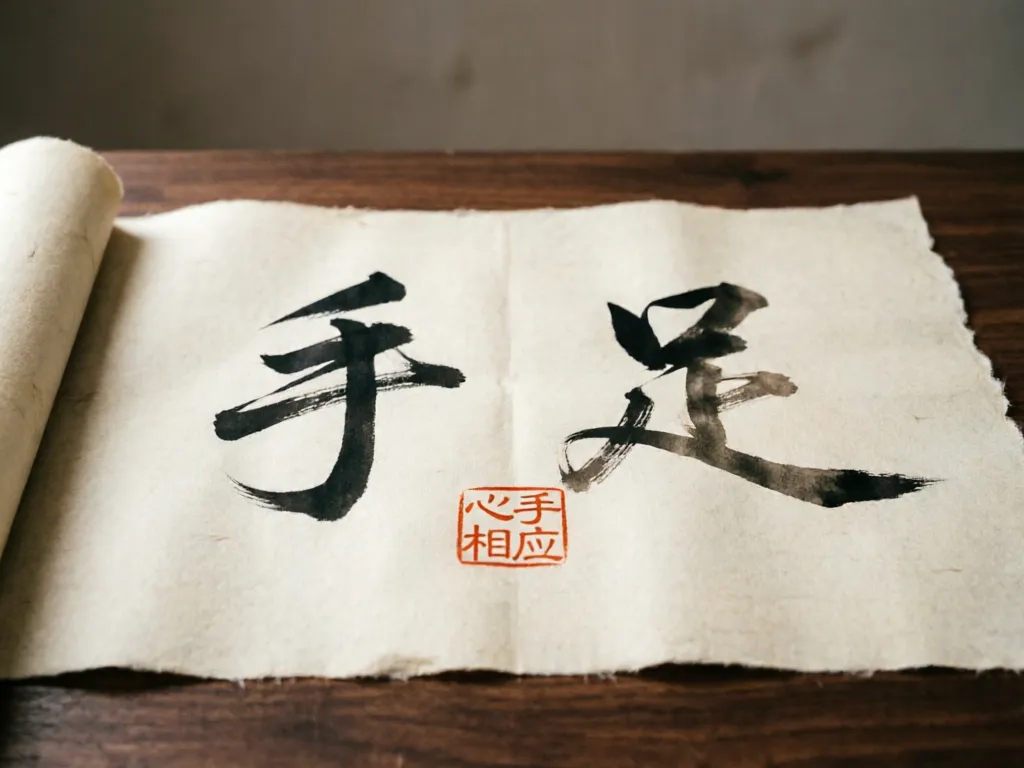 手足
心手
相应